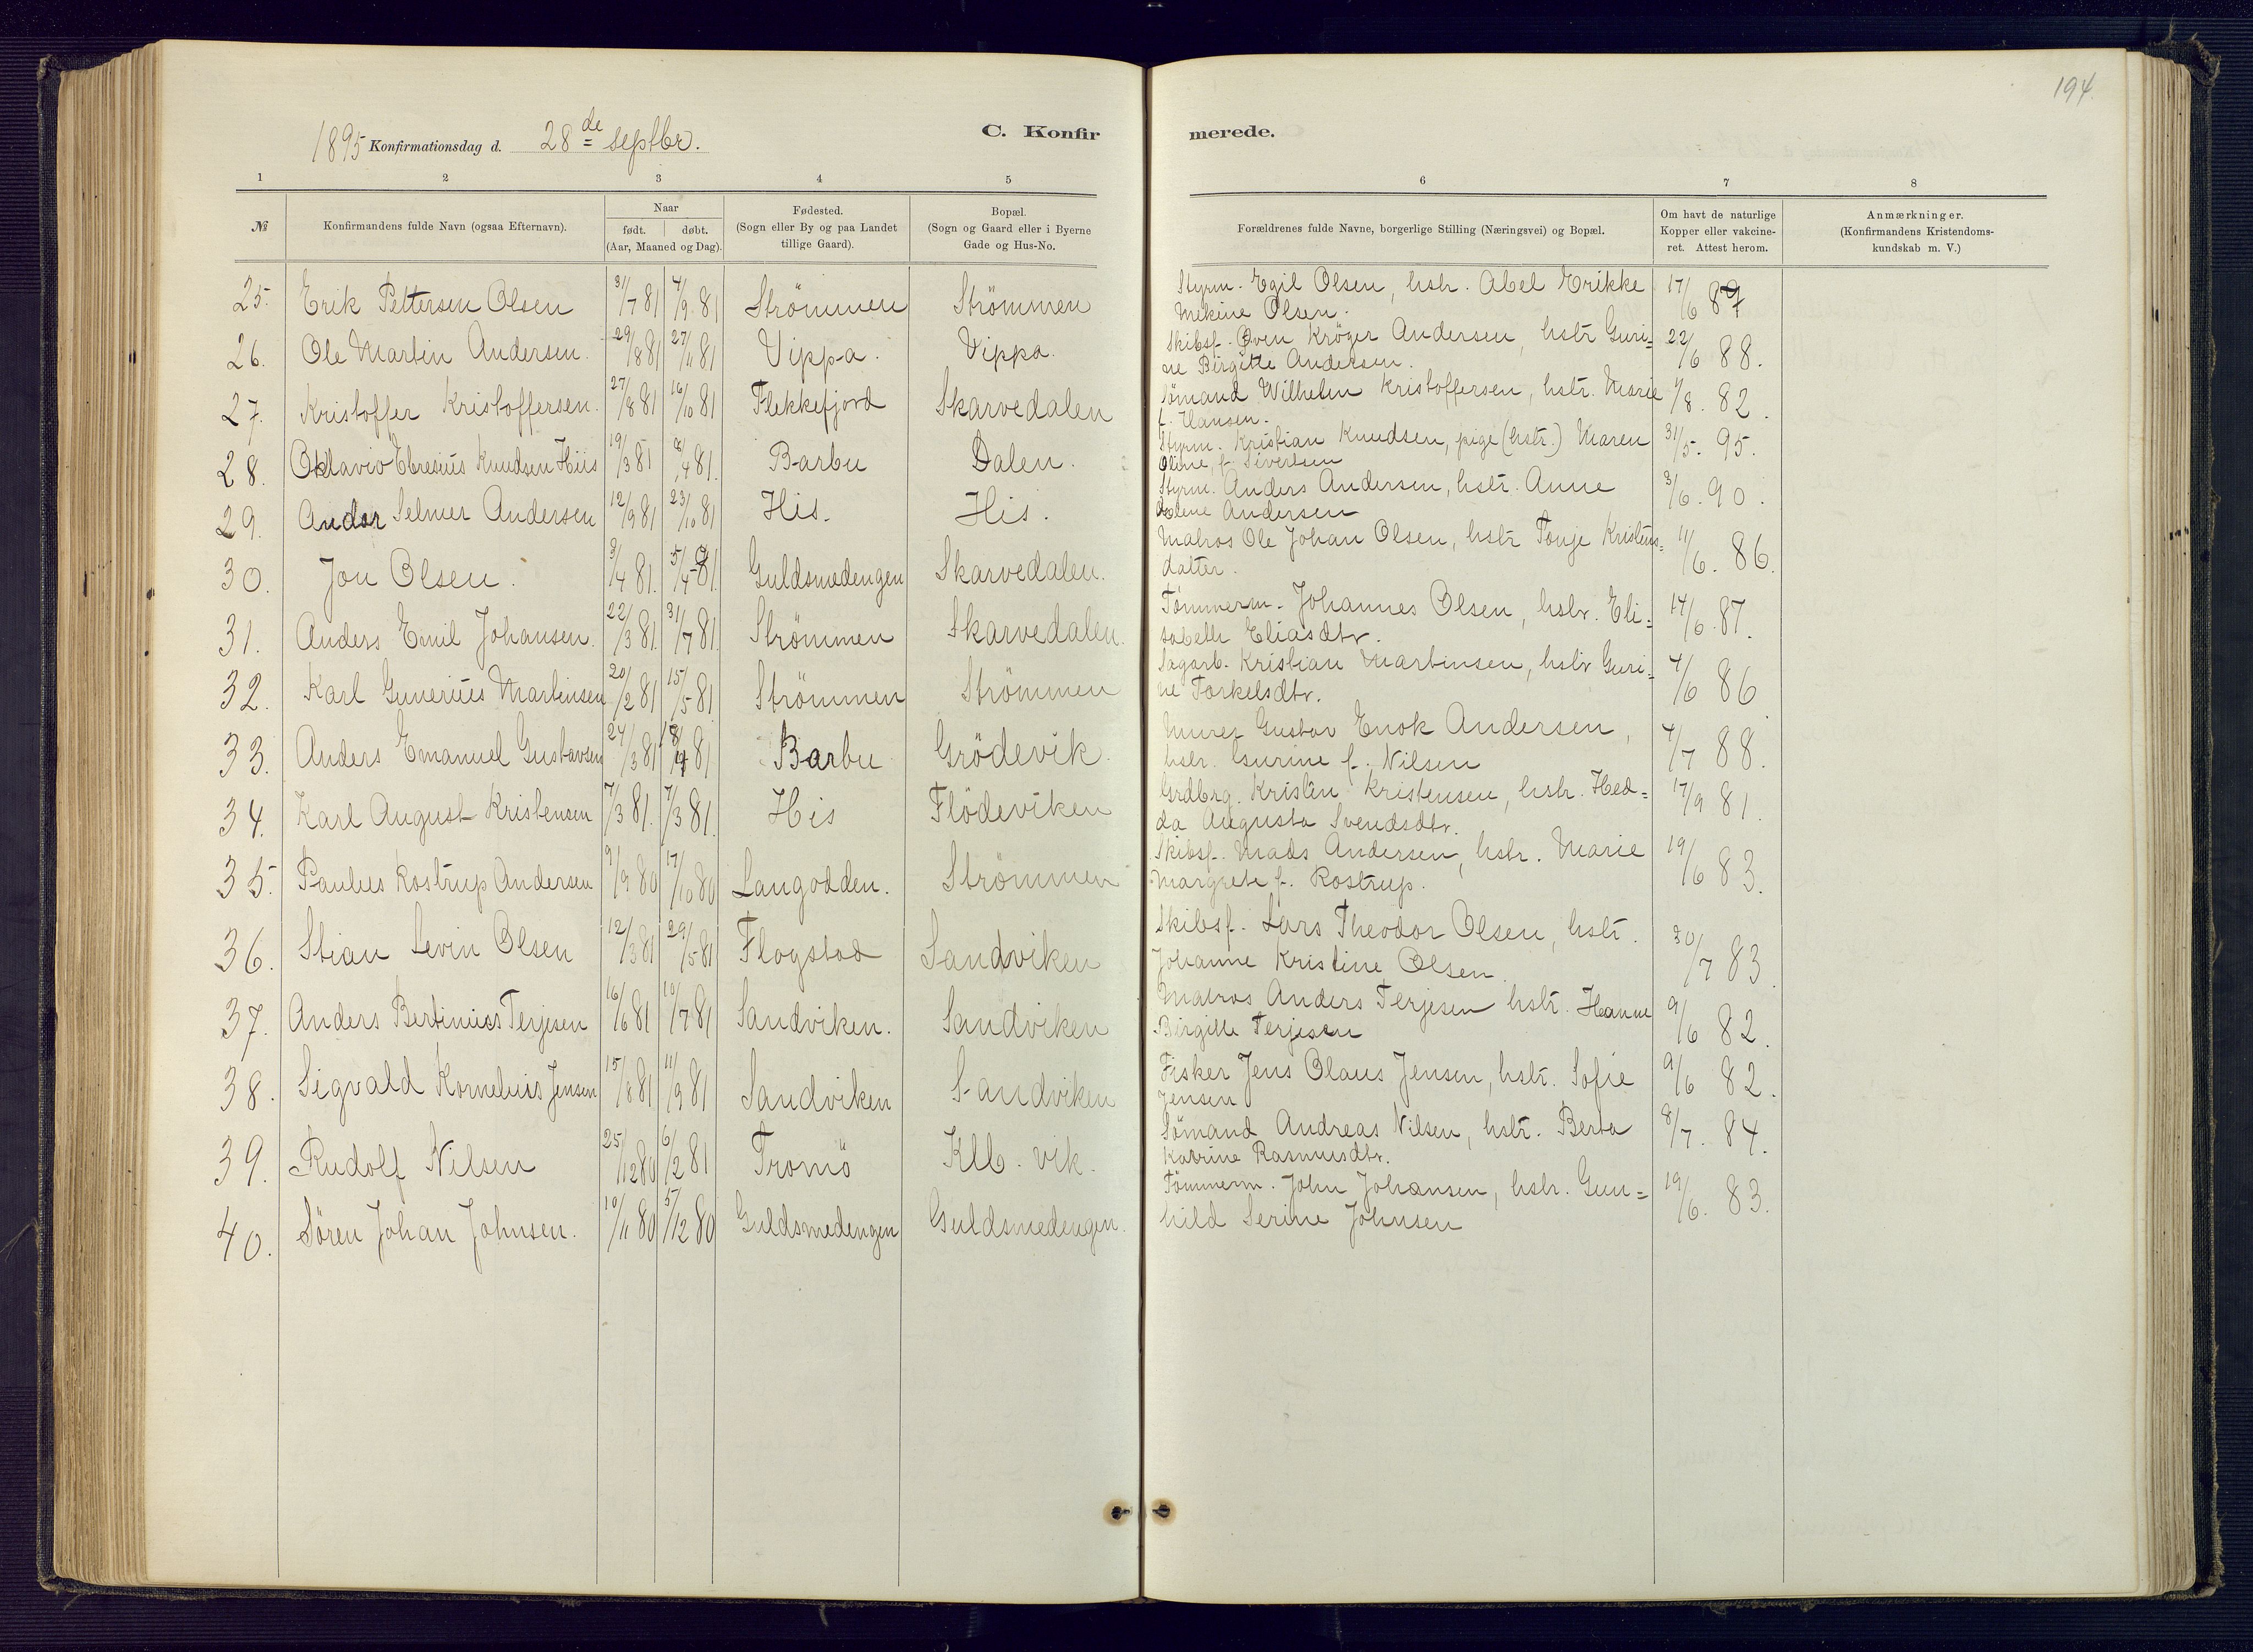 194.
1895 Konfirmationsdag d. 28de septbr.
C. Konfir
merede.
1 2 3 4 5 6 7 8
№ Konfirmandens fulde Navn (ogsaa Efternavn).
Naar
født. døbt.
(Aar, Maaned og Dag).
Fødested.
(Sogn eller By og paa Landet
tillige Gaard).
Bopæl.
(Sogn og Gaard eller i Byerne
Gade og Hus-No.
Forældrenes fulde Navne, borgerlige Stilling (Næringsvei) og Bopæl.
Om havt de naturlige
Kopper eller vakcine-
ret. Attest herom.
Anmærkninger.
(Konfirmandens Kristendoms-
kundskab m. V.)
25. Erik Pettersen Olsen 31/7 81 4/9 81 Strömmen Strömmen Styrm. Egil Olsen, hstr. Abel Erikke 17/6 87
Mekine Olsen.
26. Ole Martin Andersen. 29/8 81 27/11 81 Vippa. Vippa. Skibsf. Even Kröger Andersen, hstr Guri= 22/6 88.
ne Birgitte Andersen.
27. Kristoffer Kristoffersen. 27/8 81 16/10 81 Flekkefjord Skarvedalen Sömand Wilhelm Kristoffersen, hstr. Marie /8. 82.
f. Hansen.
28. Oktavio Ebresius Knudsen Hiis 19/3 81 /4 81. Barbu Dalen. Styrm. Kristian Knudsen, pige (hstr.) Maren 31/5. 95.
Oline, f. Sivertsen
29. Andor Selmer Andersen 12/9 81 23/10 81 His. His. Styrm. Anders Andersen, hstr. Anne 3/6. 90.
Andersen
30. Jon Olsen. 3/4 81. 5/4 81. Guldsmedengen Skarvedalen. Matros Ole Johan Olsen, hstr Tonje Kristens= 11/6. 86.
datter.
31. Anders Emil Johansen. 22/3 81. 31/7 81. Strömmen Skarvedalen. Tömmerm. Johannes Olsen, hstr. Eli= 14/6. 87.
sabeth Eliasdtr.
32. Karl Gunerius Martinsen 20/2 81 15/5 81 Strömmen Strömmen Sagarb. Kristian Martinsen, hstr Guri= 4/6 86.
ne Torkelsdtr.
33. Anders Emanuel Gustavsen 24/3 81 18/4 81 Barbu Grödevik. Murer Gustav Enok Andersen, 4/7 88.
hstr. Gurine f. Nilsen
34. Karl August Kristensen 7/3 81. 7/3 81. His Flödeviken Grdbrg. Kristen Kristensen, hstr. Hed= 17/9 81.
da Augusta Svendsdtr.
35. Paulus Rostrup Andersen 9/9 80 17/10 80 Langodden. Strömmen Skibsf. Mads Andersen, hstr. Marie 19/6 83.
Margrete f. Rostrup.
36. Stian Levin Olsen 12/3 81 29/5 81 Flogstad Sandviken Skibsf. Lars Theodor Olsen, hstr. 30/7 83.
Johanne Kristine Olsen.
37. Anders Bertinius Terjesen 16/6 81 10/7 81 Sandviken. Sandviken Matros Anders Terjesen hstr. Hanne 9/6 82.
Birgitte Terjesen
38. Sigvald Kornelius Jensen 15/8 81 11/9 81 Sandviken Sandviken Fisker Jens Olaus Jensen, hstr. Sofie 9/6 82.
Jensen
39. Rudolf Nilsen 25/12 80 6/2 81 Tromö Klb. vik. Sömand Andreas Nilsen, hstr. Berta 8/7. 84.
Katrine Rasmusdtr.
40. Sören Johan Johnsen. 10/11 80 5/12 80 Guldsmedengen Guldsmedengen. Tömmerm. John Johansen, hstr. Gun= 19/6. 83.
hild Serine Johnsen